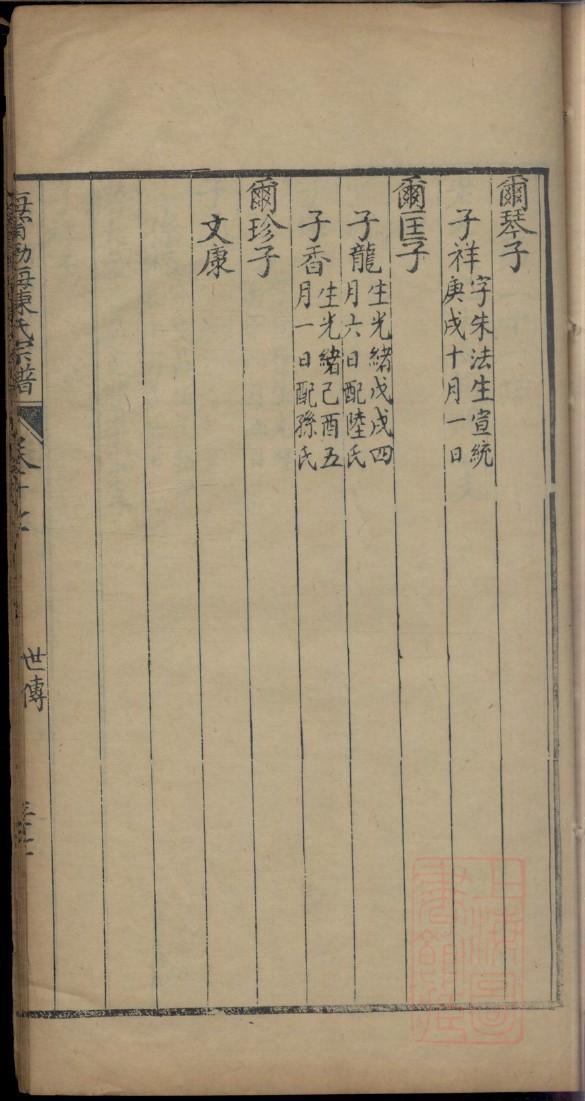 爾琴子
子祥字朱法生宣統
庚戌十月一日
爾匡子
子龍生光緒戊戌四
月六日配陸氏
子香生光緒己酉五
月一日配孫氏
爾珍子
文康
海陳氏宗譜
世傳